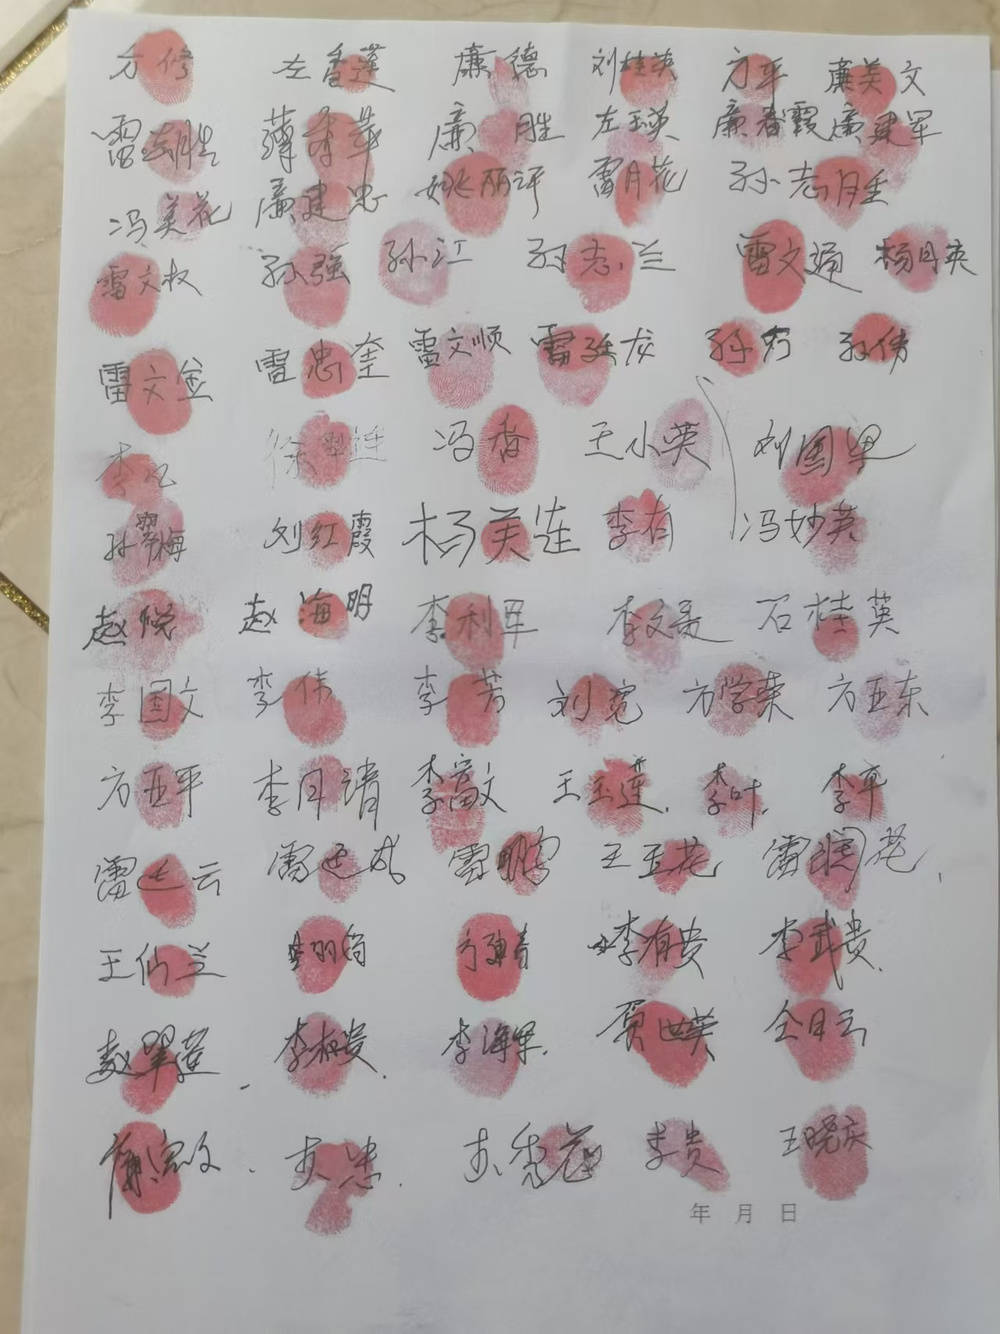 方修 左香莲 廉德 刘桂英 方平 廉美文
雷 胜 薄 廉胜 左玉英 廉春霞 廉建军
冯美花 廉建忠 姚丽评 雷月花 孙志胜
雷文权 孙强 孙江 孙志兰 雷文通 杨月英
雷文金 雷忠奎 雷文顺 雷 龙 孙 孙伟
李 徐 连 冯香 王小英 刘国
孙翠梅 刘红霞 杨美连 李有 冯妙英
赵悦 赵海明 李利军 李文 石桂英
李国文 李伟 李芳 刘宽 方学荣 方亚东
方亚平 李月清 李富文 王玉莲 李叶 李平
雷 云 雷 雷鹏 王玉花 雷润花
王仙兰 李有贵 李武贵
赵翠莲 李 贵 李海军 贾世英 全月云
忠 秀花 李贵 王晓庆
年 月 日